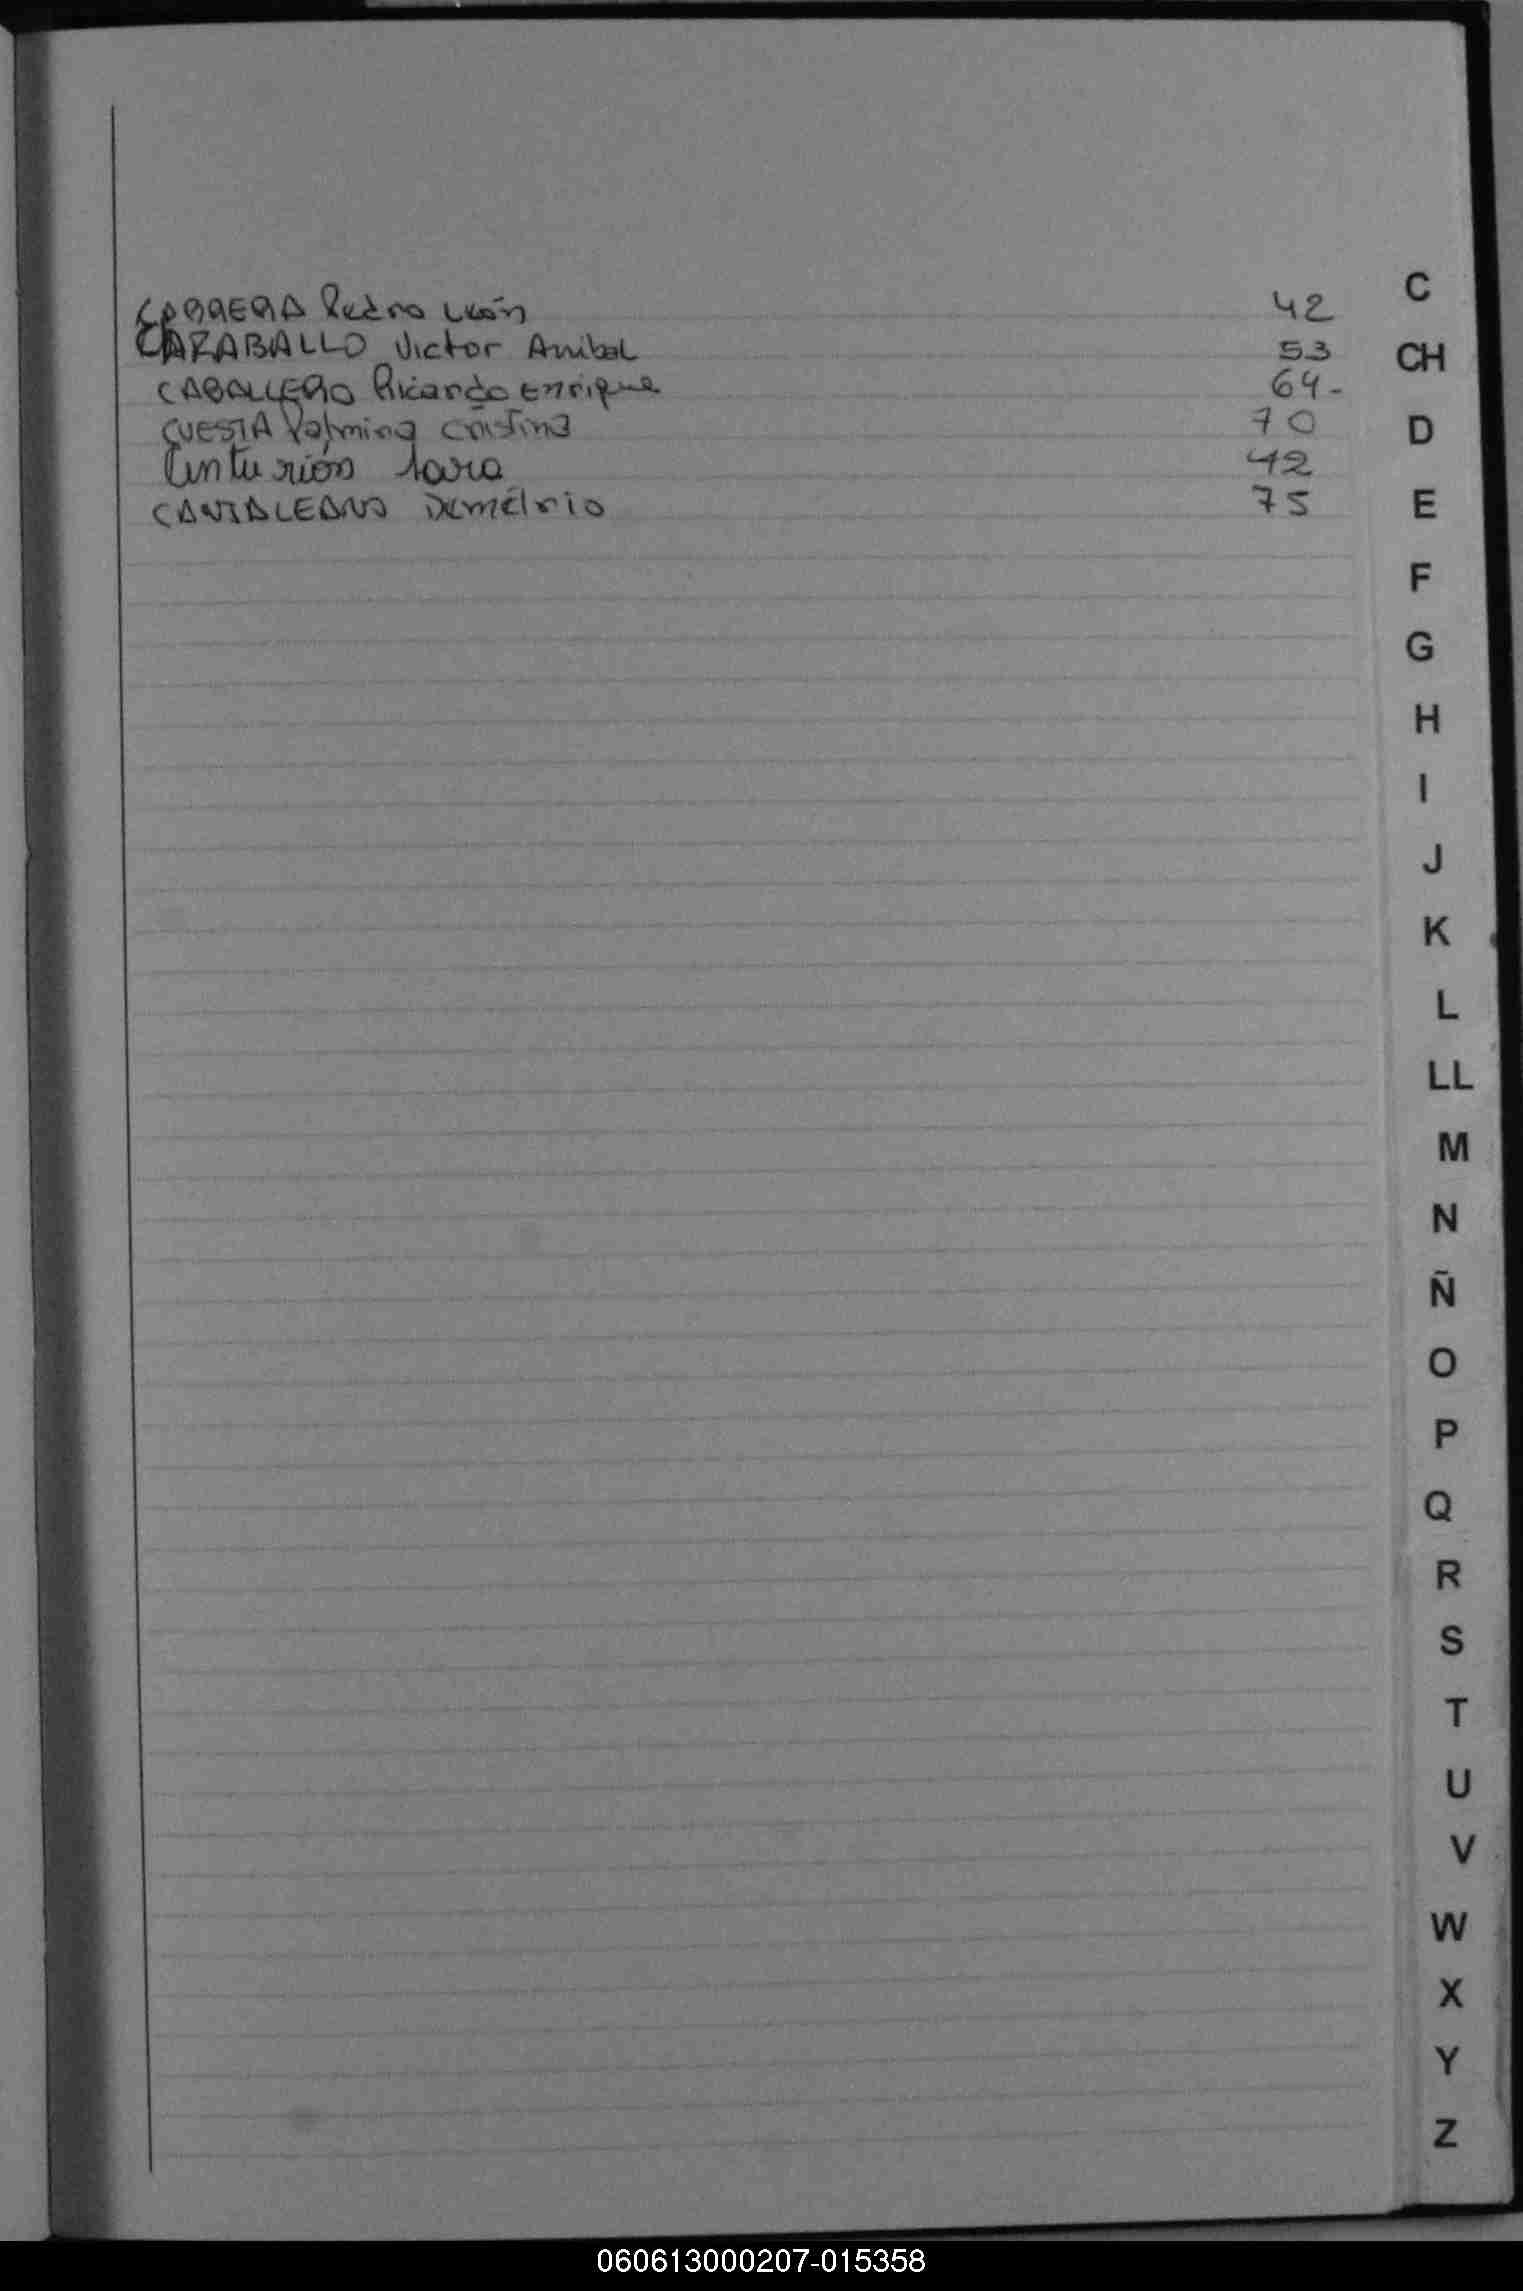 CABRERA Pedro León 42
CARABALLO Victor Anibal 53
CABALLERO Ricardo Enrique 64-
CUESTA Palmina Cristina 70
Centurión Sara 42
CANTALEANO Demétrio 75
C
CH
D
E
F
G
H
I
J
K
L
LL
M
N
Ñ
O
P
Q
R
S
T
U
V
W
X
Y
Z
060613000207-015358